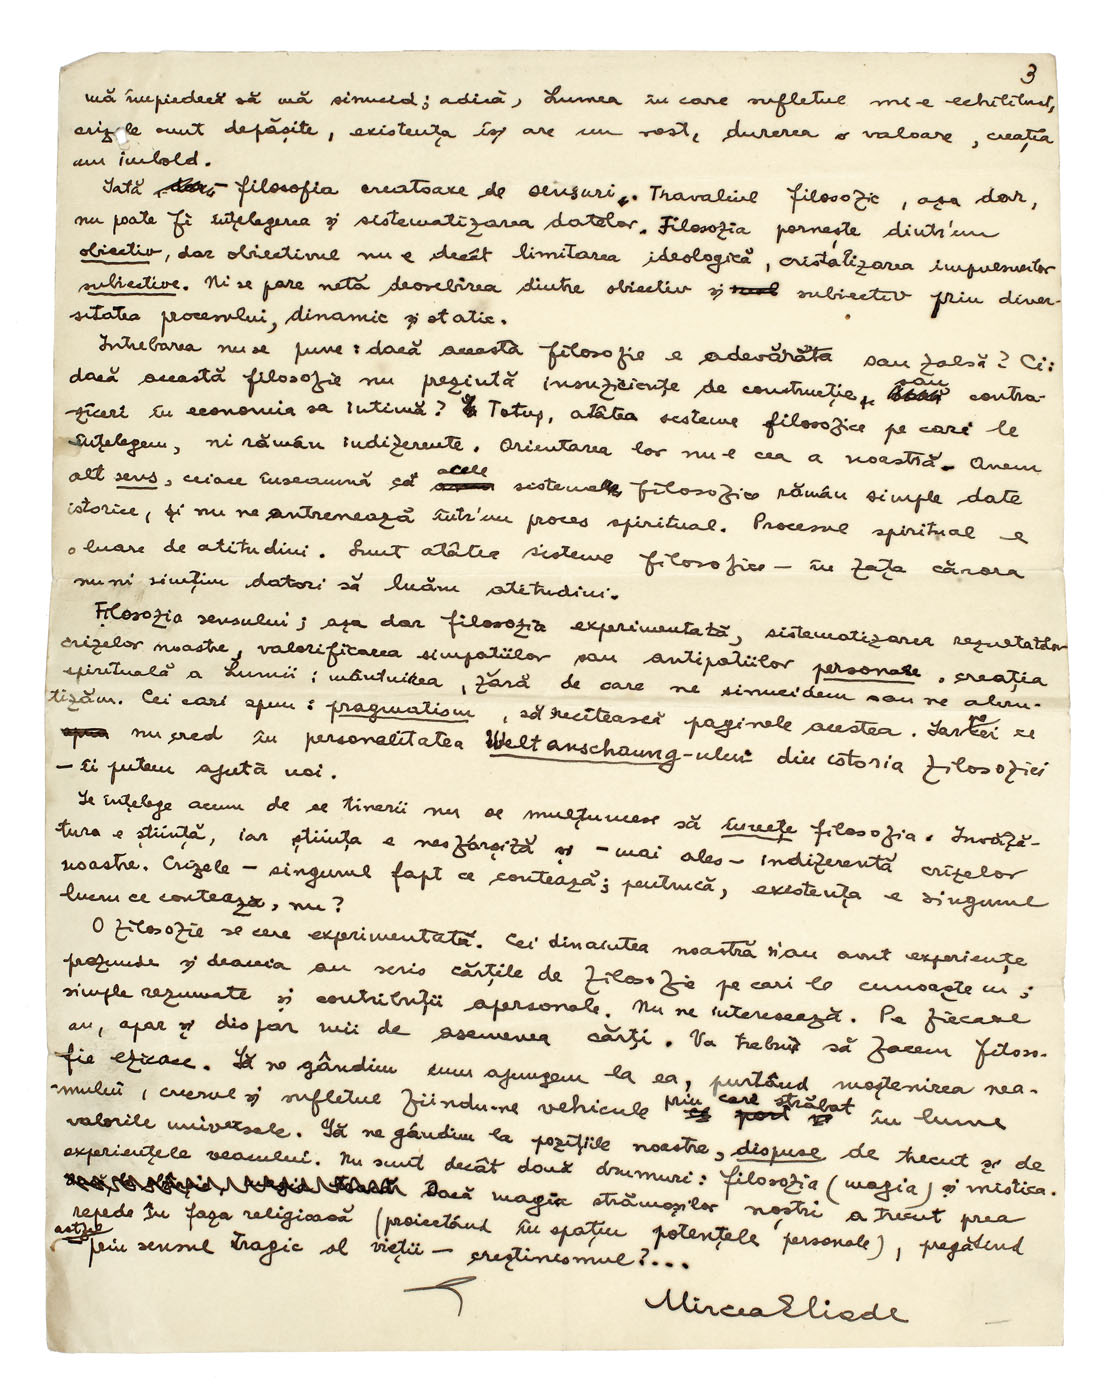 3
mă împiedecă să mă sinucid; adică, Lumea în care sufletul mi-e echilibrat,
crizele sunt depăşite, existenţa îşi are un rost, durerea o valoare, creaţia
un imbold.
Iată – filosofia creatoare de sensuri. Travaliul filosofic, aşa dar,
nu poate fi înţelegerea şi sistematizarea datelor. Filosofia porneşte dintr'un
obiectiv, dar obiectivul nu e decât limitarea ideologică, cristalizarea impulsurilor
subiective. Ni se pare netă deosebirea dintre obiectiv şi subiectiv prin diver-
sitatea procesului, dinamic şi static.
Întrebarea nu se pune: dacă această filosofie e adevărată sau falsă? Ci:
dacă această filosofie nu prezintă insuficienţe de construcţie, sau contra-
ziceri în economia sa intimă? Totuş, atâtea sisteme filosofice pe cari le
înţelegem, ni rămân indiferente. Orientarea lor nu-e cea a noastră. Avem
alt sens, ceiace înseamnă că acele sisteme filosofice rămân simple date
istorice, şi nu ne antrenează într'un proces spiritual. Procesul spiritual e
o luare de atitudini. Sunt atâtea sisteme filosofice – în faţa cărora
nu ni simţim datori să luăm atitudini.
Filosofia sensului; aşa dar filosofia experimentată, sistematizarea rezultatelor
crizelor noastre, valorificarea simpatiilor sau antipatiilor personale, creaţia
spirituală a Lumii; mântuirea, fără de care ne sinucidem sau ne abru-
tizăm. Cei cari spun: pragmatism, să recitească paginele acestea. Iar cei ce
nu cred în personalitatea Weltanschaung-ului din istoria filosofiei
– îi putem ajuta noi.
Se înţelege acum de ce tinerii nu se mulţumesc să înveţe filosofia. Învăţă-
tura e ştiinţă, iar ştiinţa e nesfârşită şi – mai ales – indiferentă crizelor
noastre. Crizele – singurul fapt ce contează; pentrucă, existenţa e singurul
lucru ce contează, nu?
O filosofie se cere experimentată. Cei dinaintea noastră şi-au avut experienţe
profunde şi deaceia au scris cărţile de filosofie pe cari le cunoaştem;
simple rezumate şi contribuţii apersonale. Nu ne interesează. Pe fiecare
an, apar şi dispar mii de asemenea cărţi. Va trebui să facem filoso-
fie eficace. Să ne gândim cum ajungem la ea, purtând moştenirea nea-
mului, creerul şi sufletul fiindu-ne vehicule prin care străbat în lume
valorile universale. Să ne gândim la poziţiile noastre, dispuse de trecut şi de
experienţele veacului. Nu sunt decât două drumuri: filosofia (magia) şi mistica.
Dacă magia strămoşilor noştri a trecut prea
repede în faza religioasă (proiectând în spaţiu potenţele personale), pregătind
astfel prin sensul tragic al vieţii – creştinismul?...
Mircea Eliade